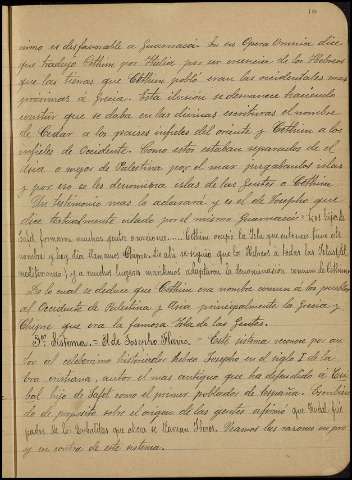 nimo es desfavorable a Guarnacci. En su Opera Omnia dice
que tradujo Cethim por Italia por ser creencia de los Hebreos
que las tierras que Cethim pobló eran las occidentales mas
próximas á Grecia. Esta ilusión se desvanece haciendo
constar que se daba en las divinas escrituras el nombre
de Cedar a la paises infieles del oriente y Cethim a los
infieles de Occidente. Como estos estaban separados de el
Asia o mejor de Palestina por el mar juzgabanlos islas
y por eso se les denomina islas de las Gentes o Cethim
Un testimonio mas lo aclarará y es el de Josepho que
dice textualmente citado por el mismo Guarnacci: Los hijos de
Jafet, formaron muchas gentes o naciones..... Cethim ocupó la Isla que entonces tuvo este
nombre y hoy dia llamamos Chipre. De ahi se siguió que los Hebreos a todas las Islas del
mediterraneo, y a muchos lugares maritimos adaptaron la denominación comun de Cethim
De lo cual se deduce que Cethim era nombre comun á los pueblos
al Occidente de Palestina y Asia principalmente la Grecia y
Chipre que era la famosa Isla de las Gentes.
3er. Sistema.- El de Josepho Flavio.- Este sistema reconoce por au-
tor al celebérrimo historiador Hebreo Josepho en el siglo I de la
Era cristiana, autor el mas antiguo que ha defendido á Tu-
bal hijo de Jafet como el primer poblador de España. Escribien-
do de propósito sobre el origen de las gentes afirmó que Tubal fué
padre de los Tobelitas que ahora se llaman Iberos. Veamos las razones en pro
y en contra de este sistema.